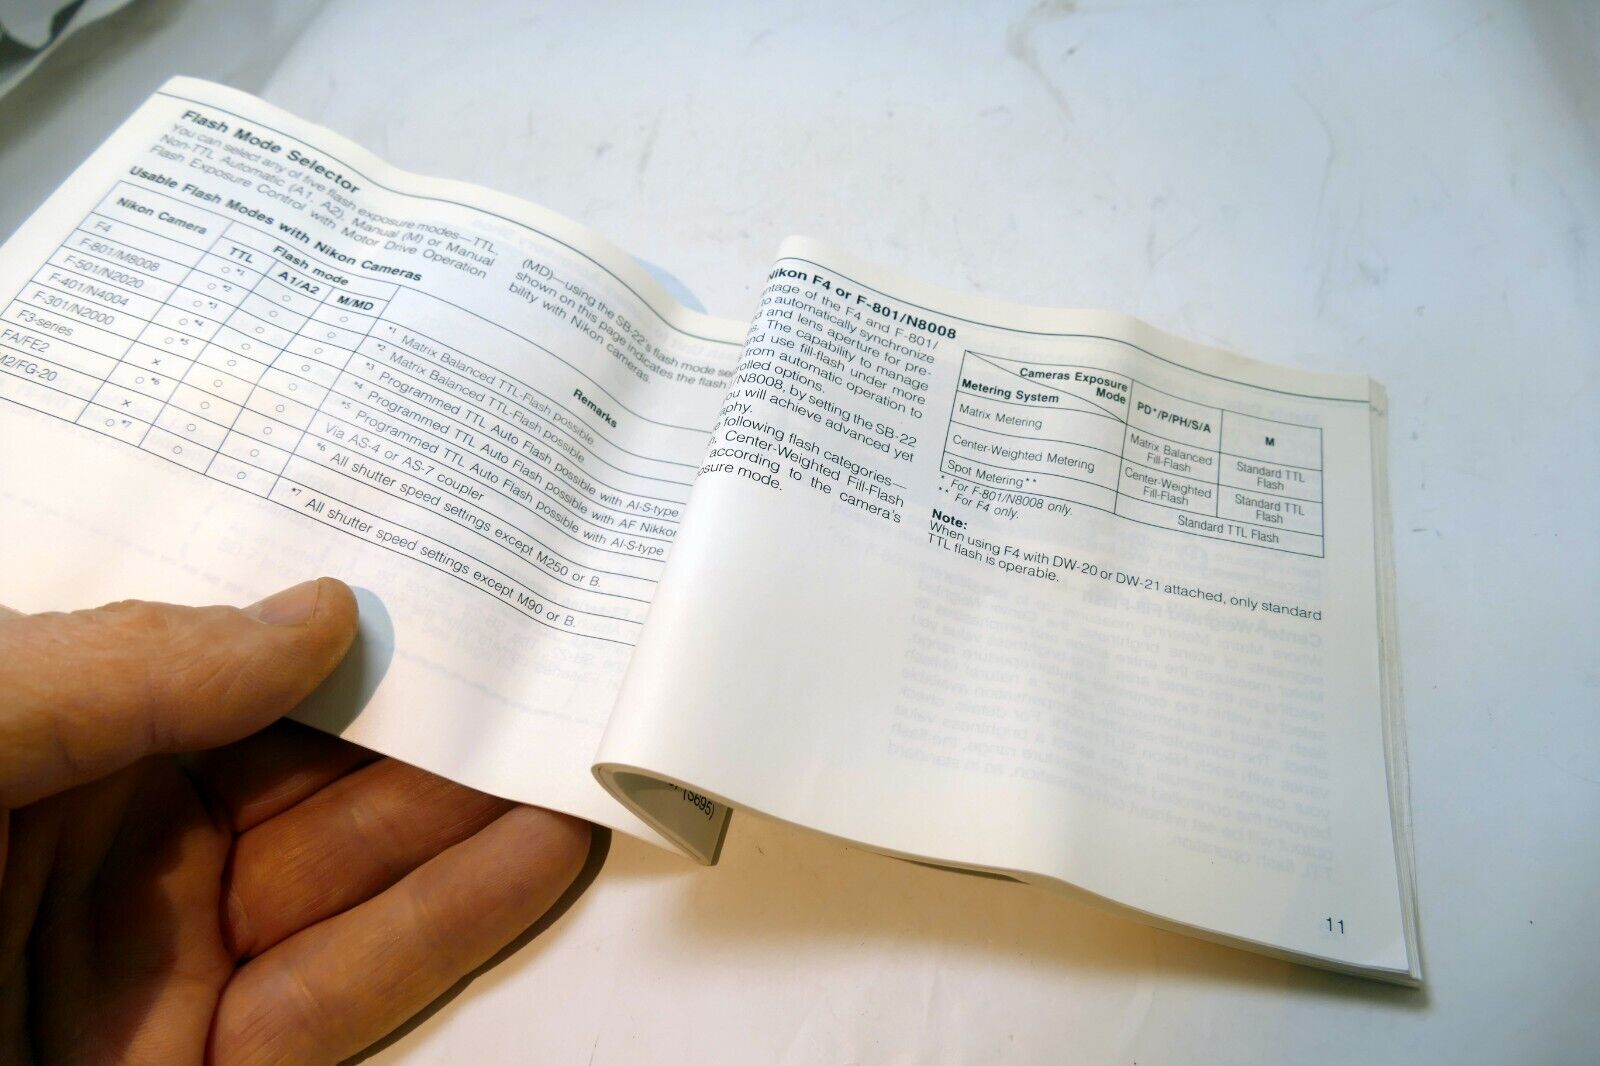 Flash Mode Selector
You can select any of five flash exposure modes—TTL,
Non-TTL Automatic (A1, A2), Manual (M) or Manual
Flash Exposure Control with Motor Drive Operation
(MD)—using the SB-22's flash mode se
shown on this page indicates the flash
bility with Nikon cameras.
Usable Flash Modes with Nikon Cameras
Nikon Camera
Flash mode
Remarks
TTL A1/A2 M/MD
F4 ○ *1 ○ ○
F-801/M8008 ○ *2 ○ ○
F-501/N2020 ○ *3 ○ ○
F-401/N4004 ○ *4 ○ ○
F-301/N2000 ○ *5 ○ ○
F3-series × ○ ○
FA/FE2 ○ *6 ○ ○
M2/FG-20 × ○ ○
○ *7 ○ ○
*1 Matrix Balanced TTL-Flash possible
*2 Matrix Balanced TTL-Flash possible
*3 Programmed TTL Auto Flash possible with AI-S-type
*4 Programmed TTL Auto Flash possible with AF Nikkor
*5 Programmed TTL Auto Flash possible with AI-S-type
Via AS-4 or AS-7 coupler
*6 All shutter speed settings except M250 or B.
*7 All shutter speed settings except M90 or B.
(S695)
Nikon F4 or F-801/N8008
ntage of the F4 and F-801/
to automatically synchronize
d and lens aperture for pre-
s. The capability to manage
nd use fill-flash under more
from automatic operation to
olled options.
/N8008, by setting the SB-22
ou will achieve advanced yet
aphy.
e following flash categories—
Center-Weighted Fill-Flash
according to the camera's
osure mode.
Cameras Exposure Mode
Metering System
PD*/P/PH/S/A
M
Matrix Metering
Matrix Balanced Fill-Flash
Standard TTL Flash
Center-Weighted Metering
Center-Weighted Fill-Flash
Standard TTL Flash
Spot Metering**
Standard TTL Flash
* For F-801/N8008 only.
** For F4 only.
Note:
When using F4 with DW-20 or DW-21 attached, only standard
TTL flash is operable.
11